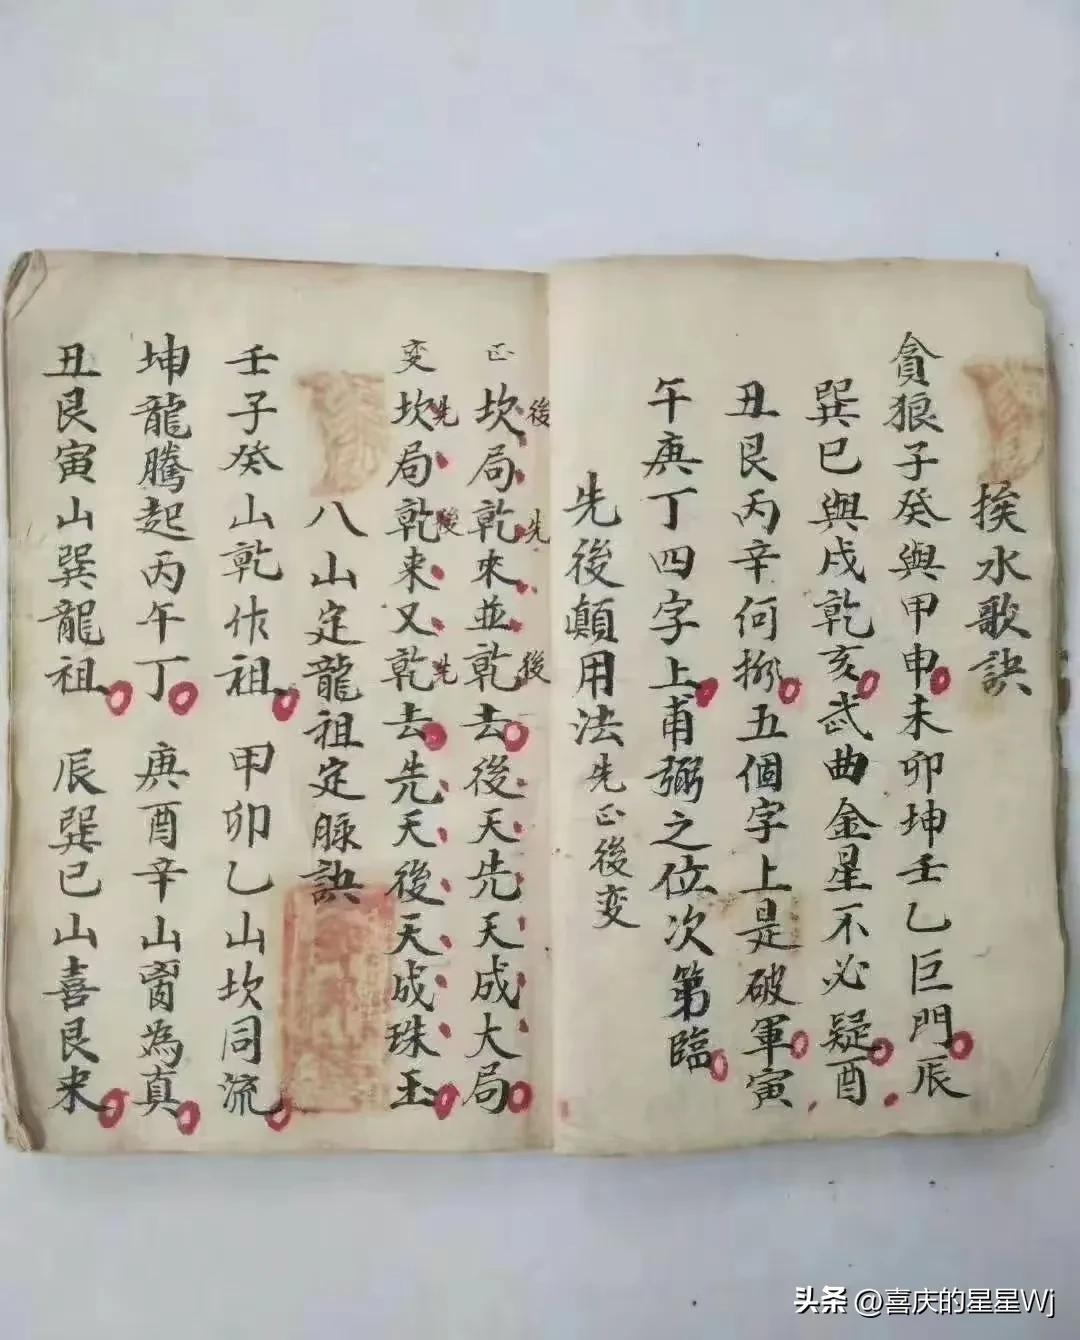 挨水歌訣
貪狼子癸與甲申未卯坤壬乙巨門辰
巽巳與戌乾亥武曲金星不必疑酉
丑艮丙辛何挪五個字上是破軍寅
午庚丁四字上甫弼之位次第臨
先後顛用法先正後变
正坎局乾來並乾去後天先天成大局
後先後
变坎局乾来又乾去先天後天成珠玉
先後先
八山定龍祖定脉訣
壬子癸山乾作祖甲卯乙山坎同流
坤龍騰起丙午丁庚酉辛山為真
丑艮寅山巽龍祖辰巽巳山喜艮来
头条 @喜庆的星星Wj